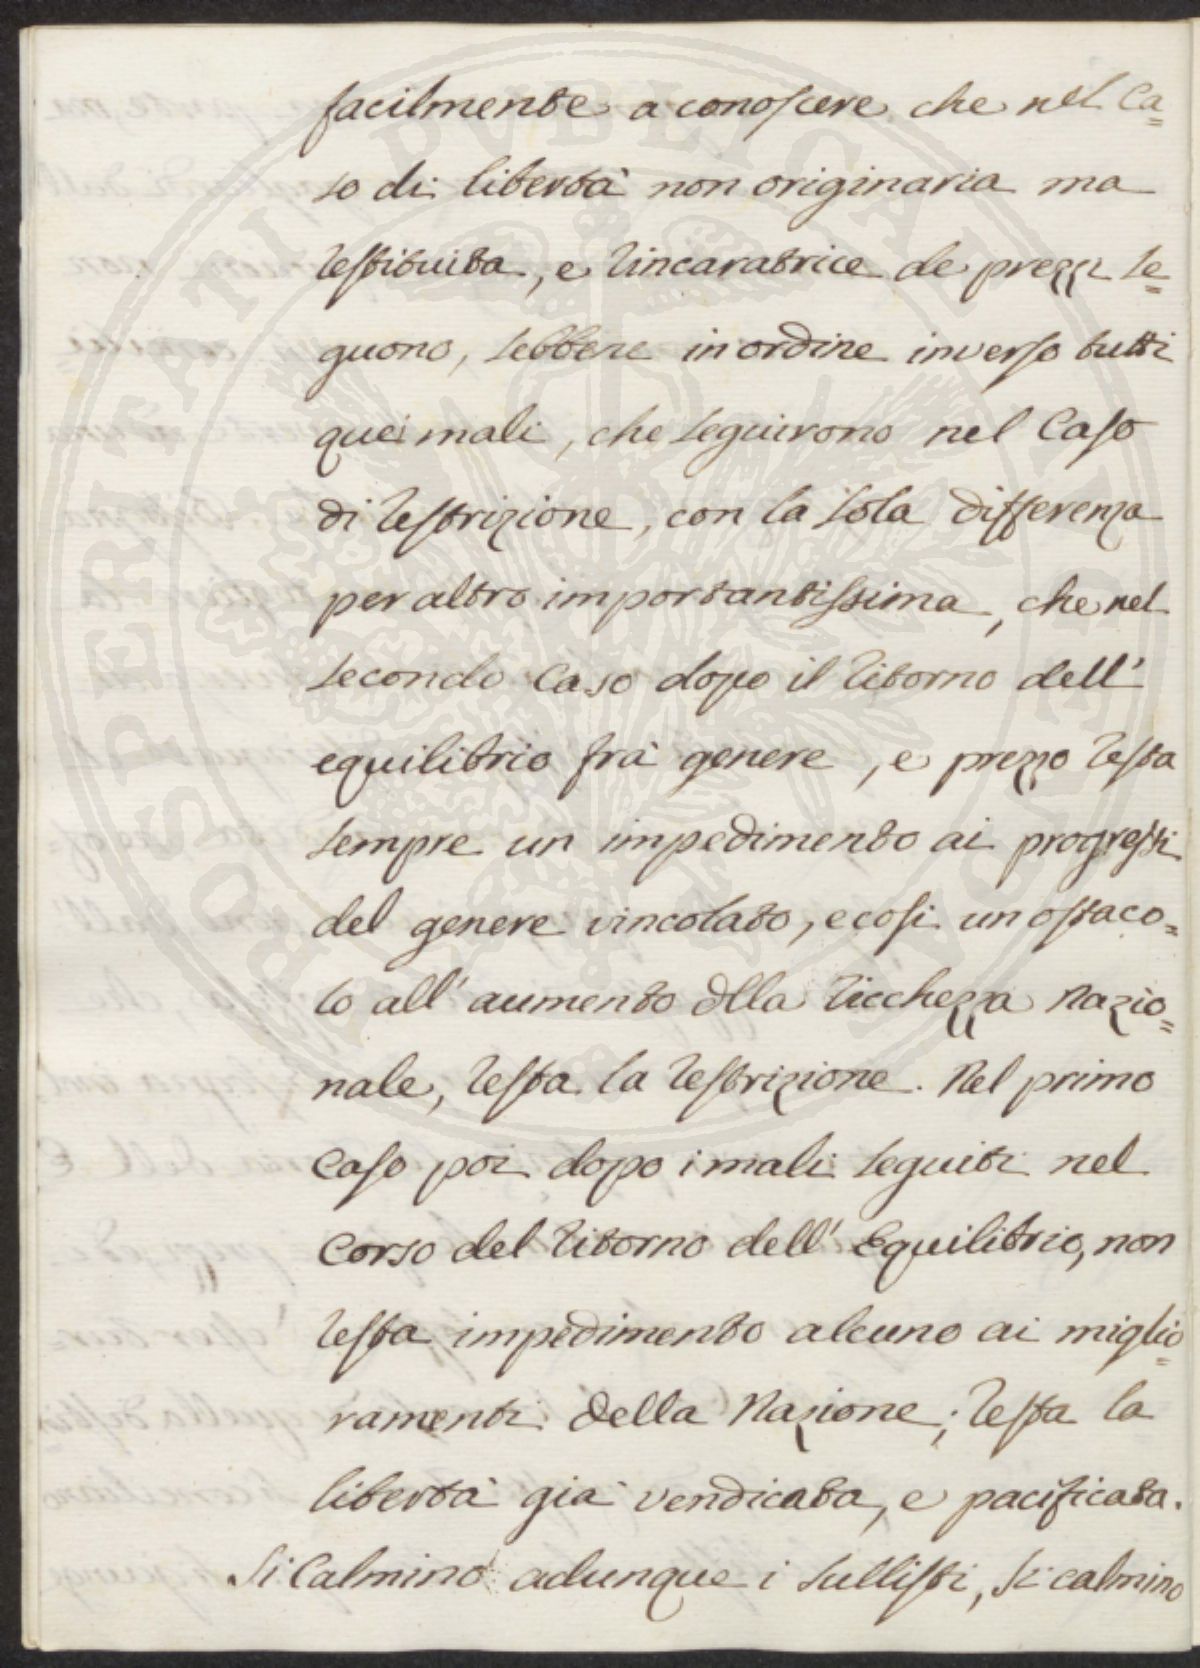 facilmente a conoscere che nel Ca=
so di libertà non originaria ma
restituita, e rincaratrice de prezzi se=
guono, sebbene in ordine inverso tutti
quei mali, che seguirono nel Caso
di restrizione, con la sola differenza
per altro importantissima, che nel
secondo Caso dopo il ritorno dell'
equilibrio frà genere, e prezzo resta
sempre un impedimento ai progressi
del genere vincolato, e così un ostaco=
lo all'aumento dlla ricchezza Nazio=
nale, resta la restrizione. Nel primo
Caso poi dopo i mali seguiti nel
Corso del ritorno dell'Equilibrio, non
resta impedimento alcuno ai miglio=
ramenti della Nazione; resta la
libertà già vendicata, e pacificata.
Si Calmino adunque i sullisti, si calmino
PROSPERITATI PVBLICAE AVGENDAE